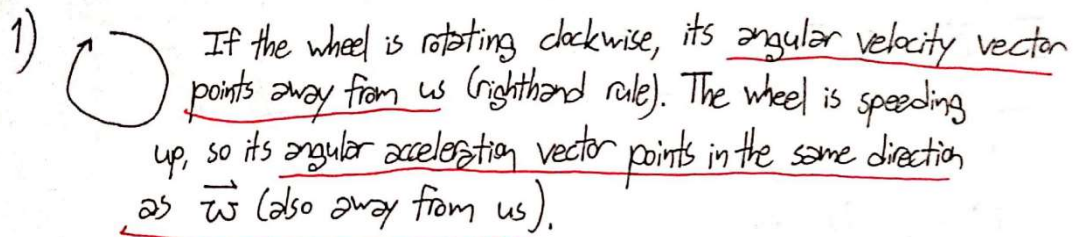 1) If the wheel is rotating clockwise, its angular velocity vector
points away from us (righthand rule). The wheel is speeding
up, so its angular acceleration vector points in the same direction
as ω⃗ (also away from us).